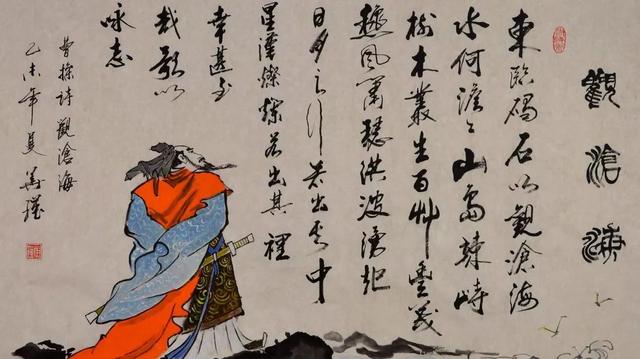 觀滄海
東臨碣石以觀滄海
水何澹々山島竦峙
樹木叢生百艸豐茂
秋風蕭瑟洪波湧起
日月之行若出其中
星漢燦爛若出其裡
幸甚至
哉歌以
咏志
曹操詩觀滄海
乙未年夏